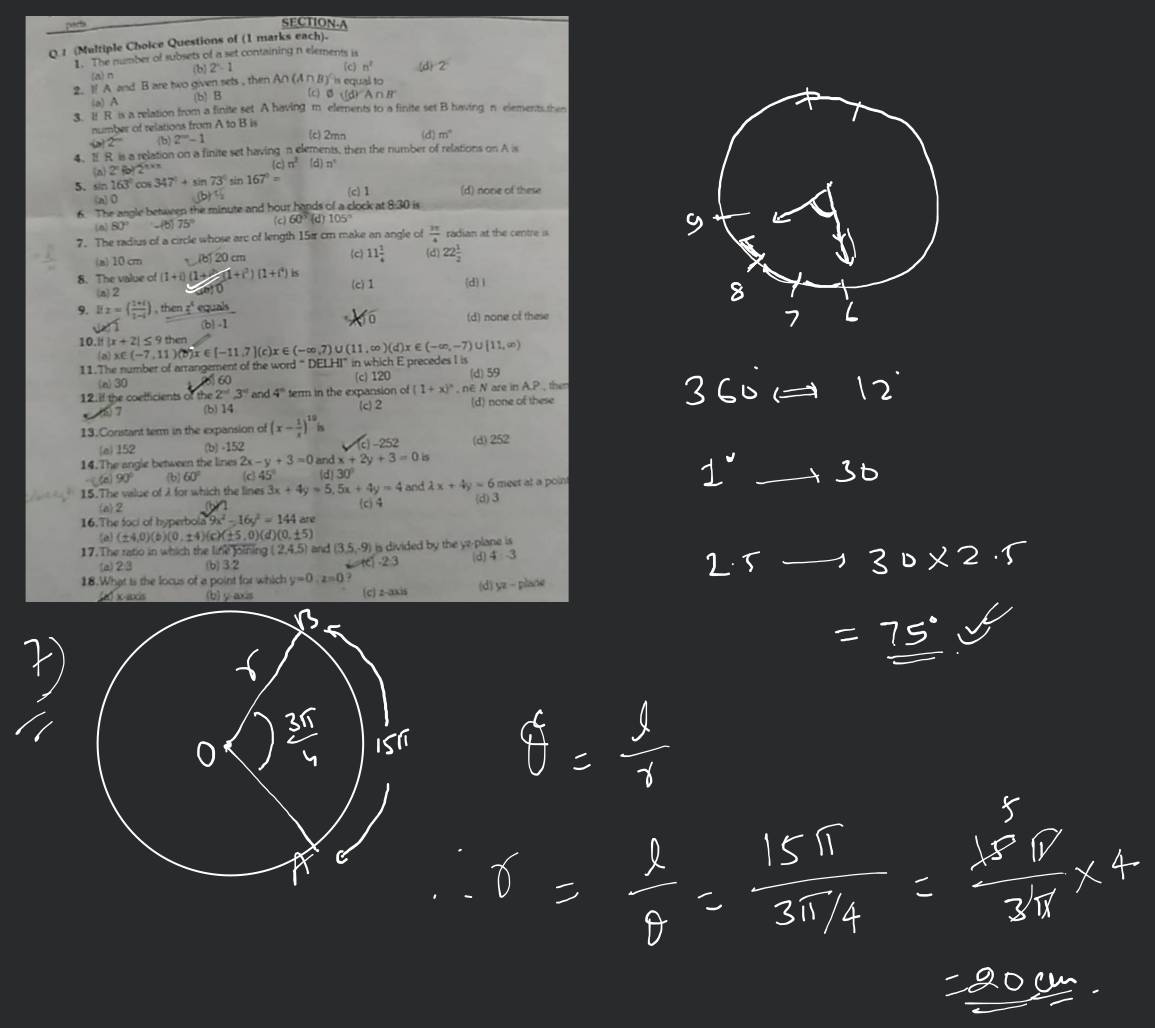 parts
SECTION-A
Q.1 (Multiple Choice Questions of (1 marks each)-
1. The number of subsets of a set containing n elements is
(a) n (b) 2ⁿ-1 (c) n² (d) 2ⁿ
2. If A and B are two given sets, then A∩(A∩B)ᶜ is equal to
(a) A (b) B (c) ∅ (d) A∩Bᶜ
3. If R is a relation from a finite set A having m elements to a finite set B having n elements, then
number of relations from A to B is
(a) 2ᵐⁿ (b) 2ᵐⁿ-1 (c) 2mn (d) mⁿ
4. If R is a relation on a finite set having n elements, then the number of relations on A is
(a) 2ⁿ (b) 2ⁿˣⁿ (c) n² (d) nⁿ
5. sin 163° cos 347° + sin 73° sin 167° =
(a) 0 (b) ½ (c) 1 (d) none of these
6. The angle between the minute and hour hands of a clock at 8:30 is
(a) 80° (b) 75° (c) 60° (d) 105°
7. The radius of a circle whose arc of length 15π cm make an angle of 3π/4 radian at the centre is
(a) 10 cm (b) 20 cm (c) 11 1/4 (d) 22 1/2
8. The value of (1+i) (1+i²) (1+i³) (1+i⁴) is
(a) 2 (b) 0 (c) 1 (d) i
9. If z = (1+i/1-i), then z⁴ equals
(a) 1 (b) -1 (c) 0 (d) none of these
10. If |x + 2| ≤ 9 then
(a) x∈ (-7, 11) (b) x ∈ [-11,7] (c) x ∈ (-∞,7) ∪ (11, ∞) (d) x ∈ (-∞,-7) ∪ [11, ∞)
11. The number of arrangement of the word " DELHI" in which E precedes I is
(a) 30 (b) 60 (c) 120 (d) 59
12. If the coefficients of the 2ⁿᵈ, 3ʳᵈ and 4ᵗʰ term in the expansion of (1 + x)ⁿ, n∈ N are in A.P., then
(a) 7 (b) 14 (c) 2 (d) none of these
13. Constant term in the expansion of (x - 1/x)¹⁰ is
(a) 152 (b) -152 (c) -252 (d) 252
14. The angle between the lines 2x - y + 3 =0 and x + 2y + 3 = 0 is
(a) 90° (b) 60° (c) 45° (d) 30°
15. The value of λ for which the lines 3x + 4y = 5, 5x + 4y = 4 and λx + 4y = 6 meet at a point
(a) 2 (b) 1 (c) 4 (d) 3
16. The foci of hyperbola 9x² - 16y² = 144 are
(a) (±4,0) (b) (0, ±4) (c) (±5, 0) (d) (0, ±5)
17. The ratio in which the line joining (2,4,5) and (3,5,-9) is divided by the yz-plane is
(a) 2:3 (b) 3:2 (c) -2:3 (d) 4:-3
18. What is the locus of a point for which y=0, z=0 ?
(a) x-axis (b) y-axis (c) z-axis (d) yz - plane
9
8
7
6
360° ⟺ 12°
1° → 30
2.5 → 30 × 2.5
= 75°
7)
B
r
O
3π/4
15π
A
θᶜ = l/r
∴ r = l/θ = 15π / 3π/4 = 15π/3π × 4
5
= 20 cm.